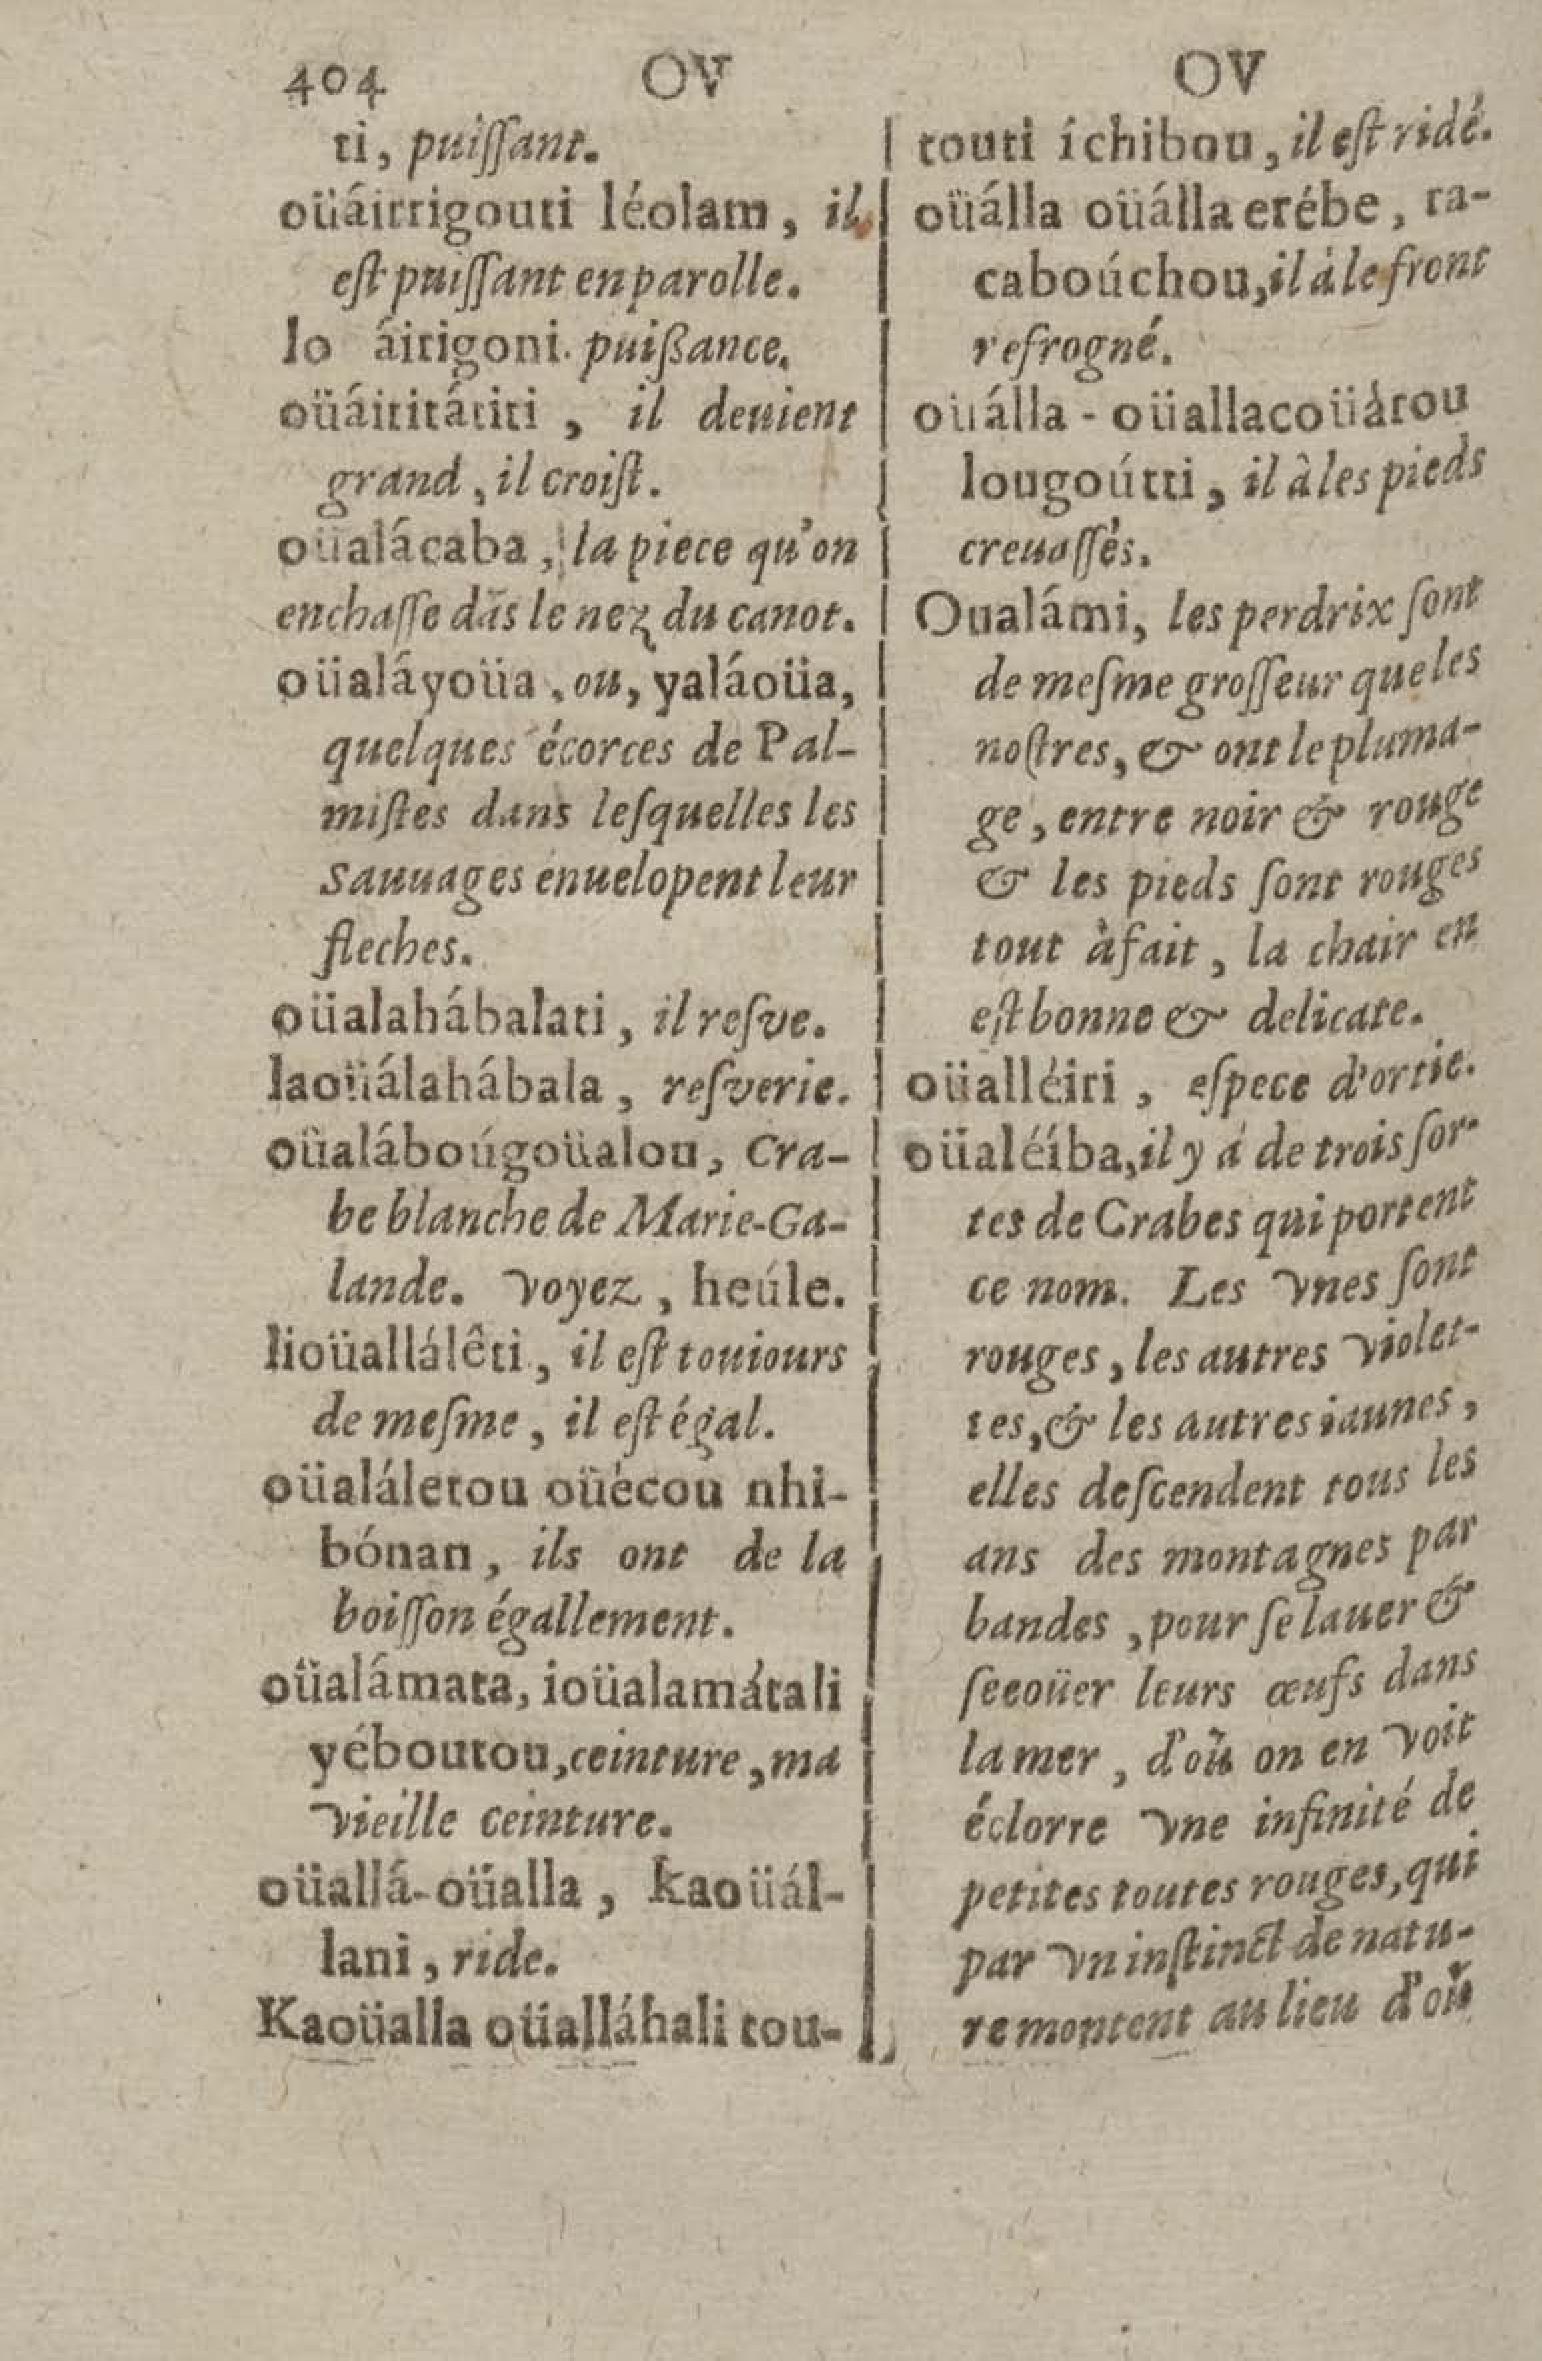 404 OV OV
ti, puiſſant.
oüáitrigouti léolam, il
eſt puiſſant en parolle.
lo áitigoni. puißance.
oüáititátiti, il deuient
grand, il croiſt.
oüalácaba, la piece qu'on
enchaſſe dãs le nez du canot.
oüaláyoüa, ou, yaláoüa,
quelques écorces de Pal-
miſtes dans leſquelles les
Sauuages enuelopent leur
fleches.
oüalahábalati, il reſve.
laoüálahábala, reſverie.
oüaláboúgoüalou, Cra-
be blanche de Marie-Ga-
lande. Voyez, heúle.
lioüallálêti, il eſt touiours
de meſme, il eſt égal.
oüaláletou oüécou nhi-
bónan, ils ont de la
boiſſon égallement.
oüalámata, ioüalamátali
yéboutou, ceinture, ma
vieille ceinture.
oüallá-oüalla, kaoüál-
lani, ride.
Kaoüalla oüalláhali tou-
touti íchibou, il eſt ridé.
oüálla oüálla erébe, ta-
caboúchou, il à le front
refrogné.
oüálla-oüallacoüàtou
lougoútti, il â les pieds
creuaſſés.
Oualámi, les perdrix ſont
de meſme groſſeur que les
noſtres, & ont le pluma-
ge, entre noir & rouge
& les pieds ſont rouges
tout àfait, la chair en
eſt bonne & delicate.
oüalléiti, eſpece d'ortie.
oüaléíba, il y á de trois ſor-
tes de Crabes qui portent
ce nom. Les vnes ſont
rouges, les autres violet-
tes, & les autres iaunes,
elles deſcendent tous les
ans des montagnes par
bandes, pour ſe lauer &
ſecoüer leurs œufs dans
la mer, d'où on en voit
éclorre vne infinité de
petites toutes rouges, qui
par vn inſtinct de natu-
remontent au lieu d'où